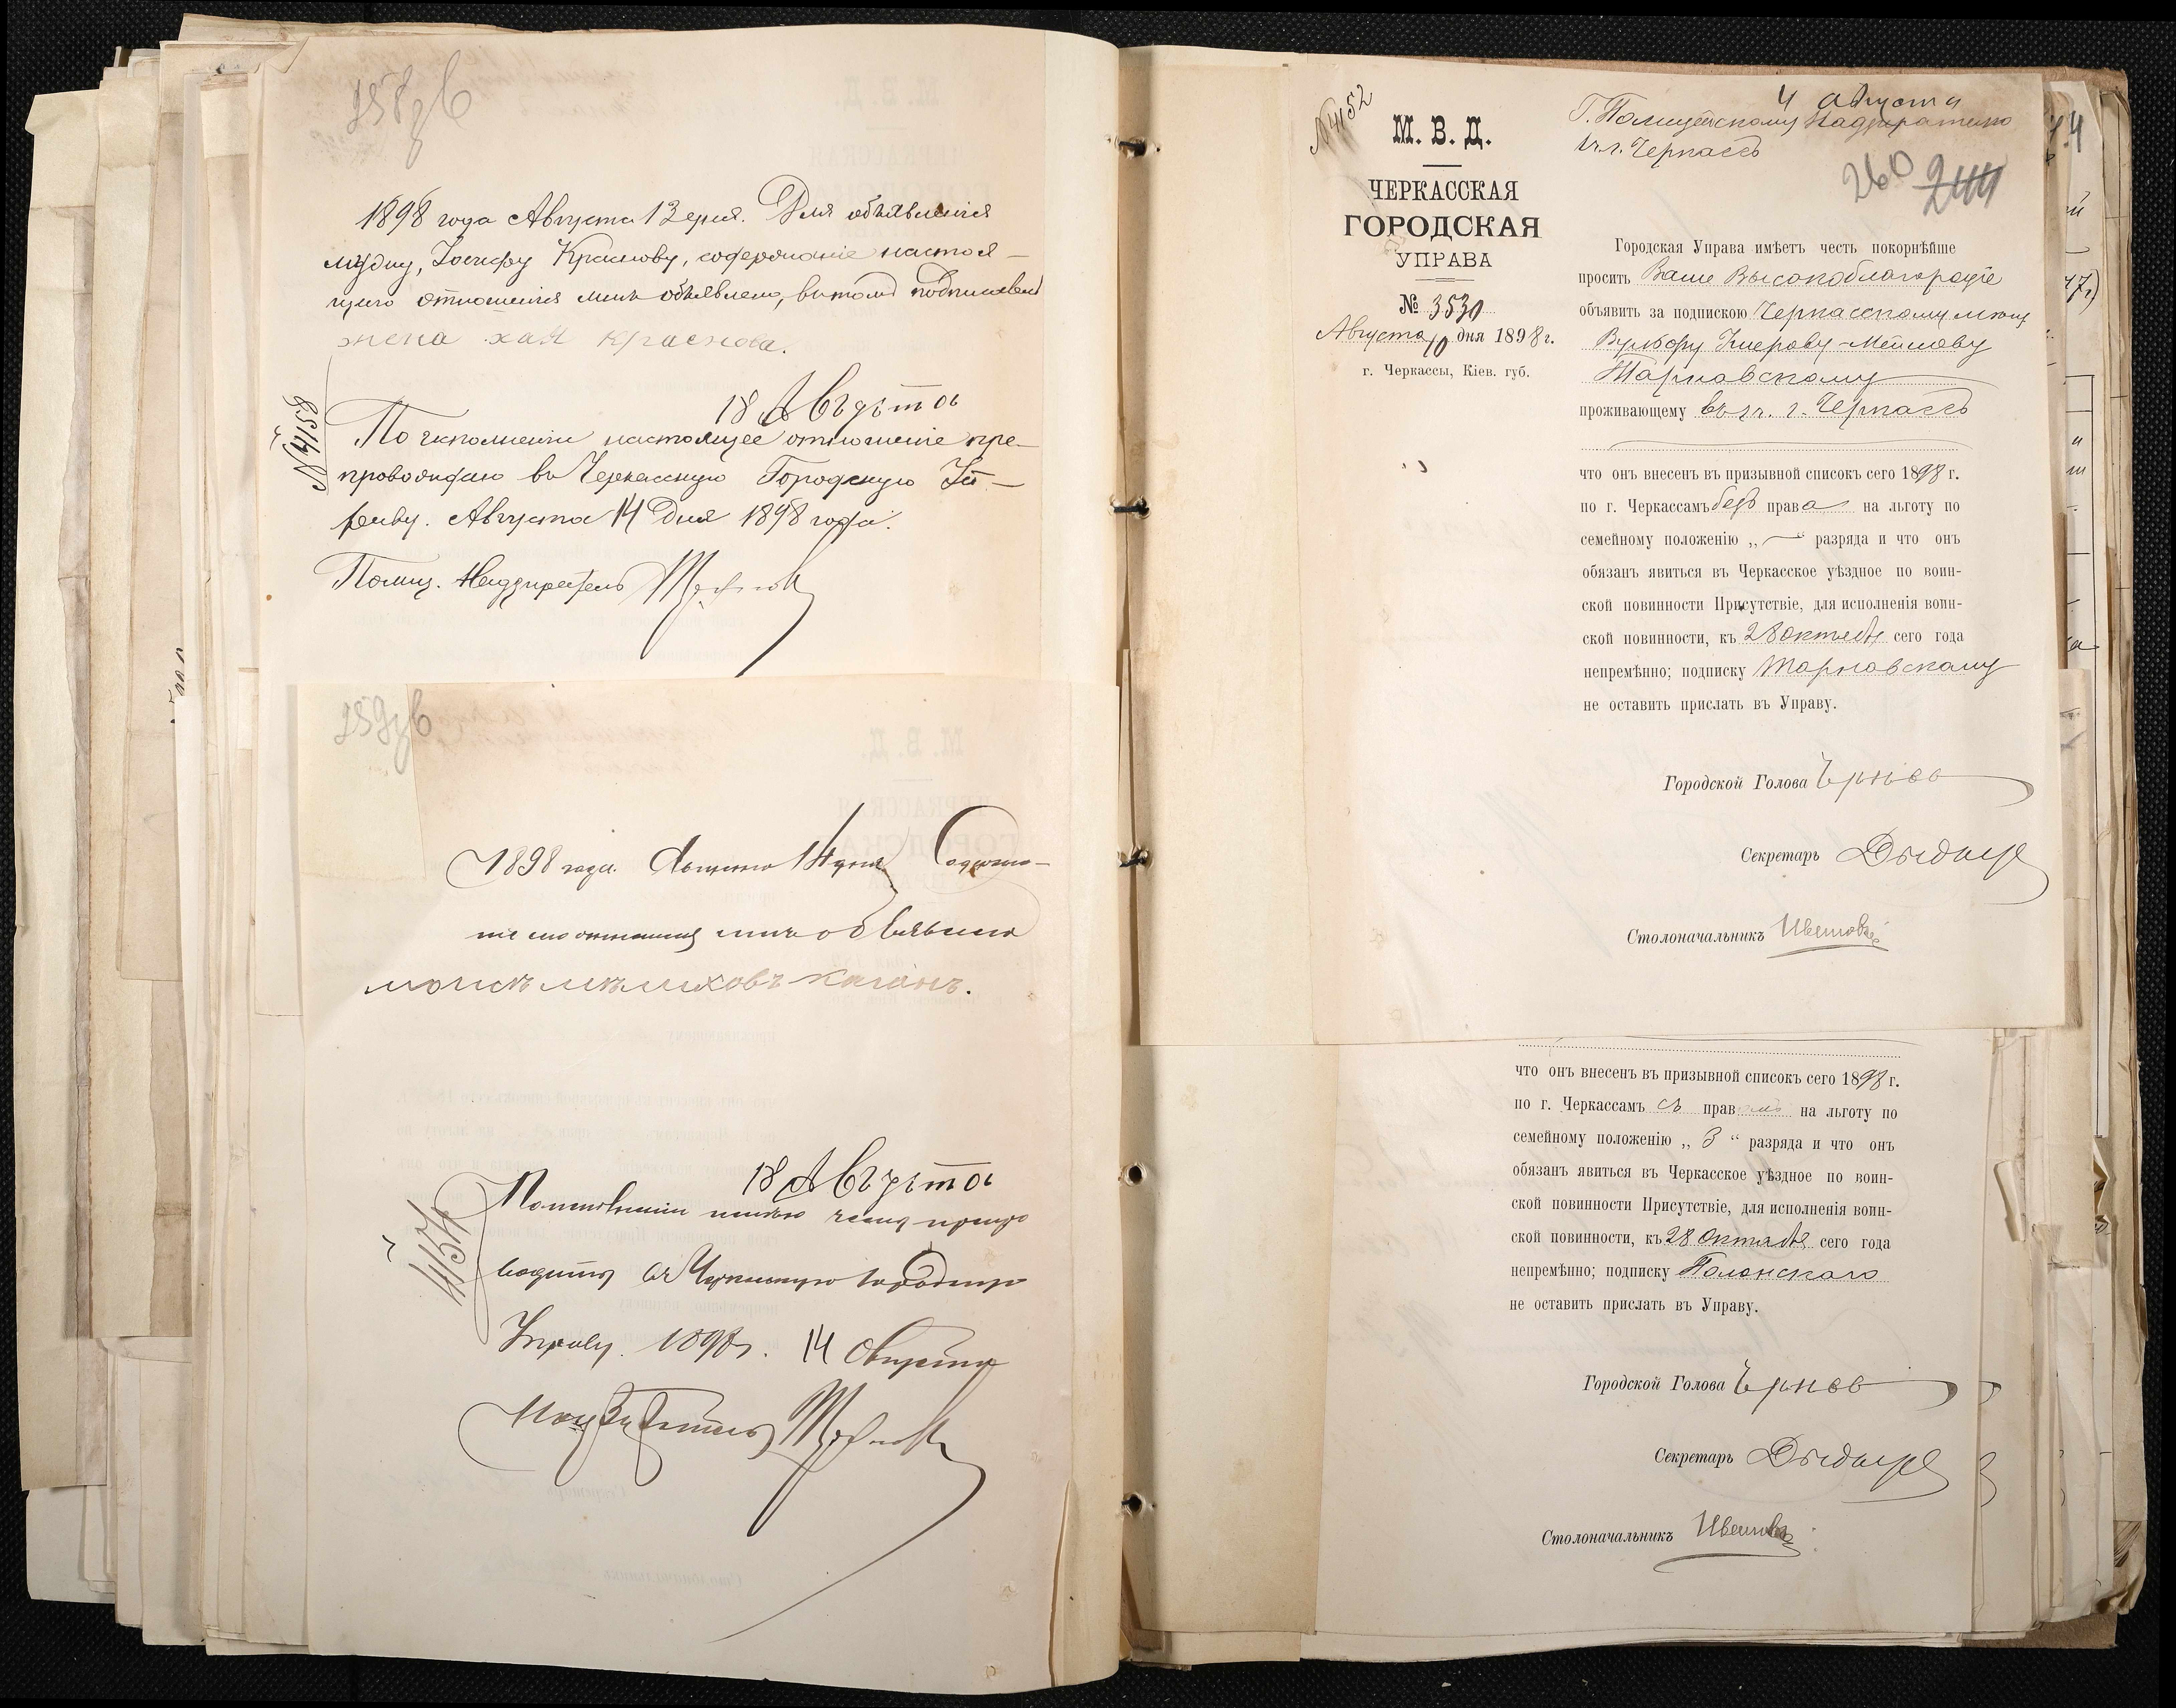 258 об
1898 года Августа 13 дня. Для объявленія
мужу, Іосифу Краснову, содержаніе настоя-
щаго отношенія мнѣ объявлено, въ томъ подписавсь
жена хая Краснова.
18 Августа
№ 4153
По исполненіи настоящее отношеніе пре-
провождаю въ Черкасскую Городскую Уп-
раву. Августа 14 Дня 1898 года.
Полиц. Надзиратель
259 об
1898 года Августа 14 дня Содержа-
ніе отношенія мнѣ объявлено
каганъ.
18 Августа
4154
По исполненіи
водится въ Черкасскую Городскую
Управу. 1898 г. 14 Августа
Надзиратель
№ 4152
М. В. Д.
ЧЕРКАССКАЯ
ГОРОДСКАЯ
УПРАВА
№ 3530
Августа 10 дня 1898 г.
г. Черкассы, Кіев. губ.
4 августа
Г. Полицейскому Надзирателю
въ г. Черкассъ
260 244
Городская Управа имѣетъ честь покорнѣйше
просить Ваше Высокоблагородіе
объявить за подпискою Черкасскому мѣщ.
Тарнавскому
проживающему въ г. Черкассъ
что онъ внесенъ въ призывной списокъ сего 1898 г.
по г. Черкассамъ безъ права на льготу по
семейному положенію „—“ разряда и что онъ
обязанъ явиться въ Черкасское уѣздное по воин-
ской повинности Присутствіе, для исполненія воин-
ской повинности, къ 28 октября сего года
непремѣнно; подписку Тарнавскому
не оставить прислать въ Управу.
Городской Голова
Секретарь
Столоначальникъ
что онъ внесенъ въ призывной списокъ сего 1898 г.
по г. Черкассамъ съ правомъ на льготу по
семейному положенію „ 3 “ разряда и что онъ
обязанъ явиться въ Черкасское уѣздное по воин-
ской повинности Присутствіе, для исполненія воин-
ской повинности, къ 28 Октября сего года
непремѣнно; подписку Полонскаго
не оставить прислать въ Управу.
Городской Голова
Секретарь
Столоначальникъ